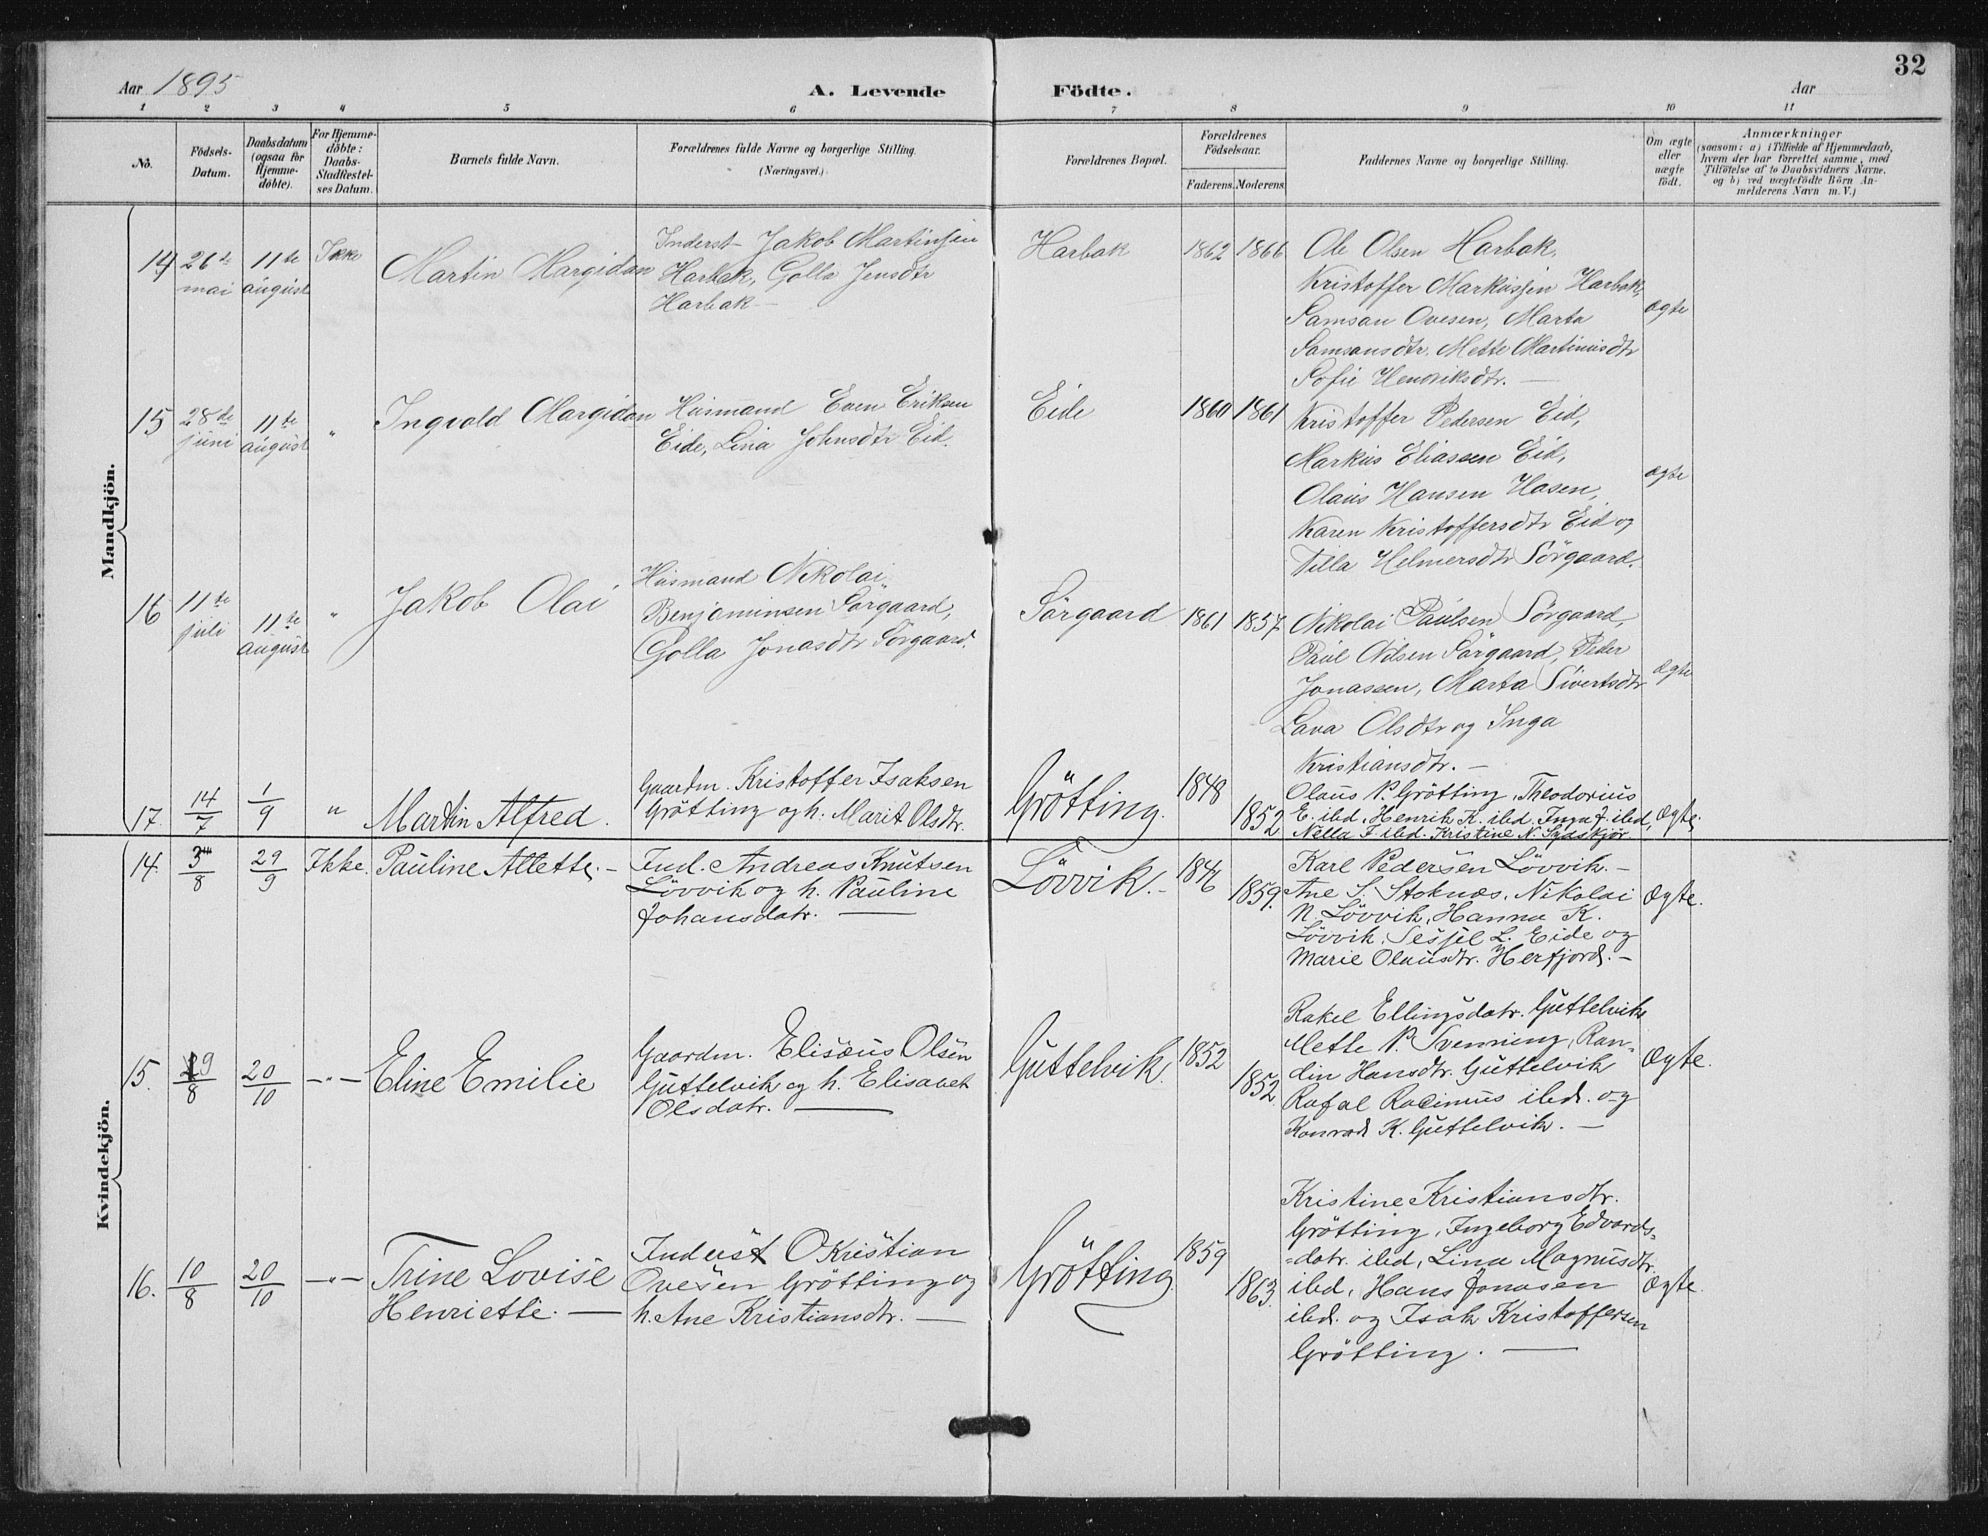 32
Aar 1895
A. Levende Födte.
Aar
1 2 3 4 5 6 7 8 9 10 11
No.
Födsels-
Datum.
Daabsdatum
(ogsaa for
Hjemme-
döbte).
For Hjemme-
döbte:
Daabs-
Stadfestel-
ses Datum.
Barnets fulde Navn.
Forældrenes fulde Navne og borgerlige Stilling.
(Næringsvei.)
Forældrenes Bopæl.
Forældrenes
Födselsaar.
Faderens. Moderens.
Faddernes Navne og borgerlige Stilling.
Om ægte
eller
uægte
födt.
Anmærkninger
(saasom: a) i Tilfælde af Hjemmedaab,
hvem der har forrettet samme, med
Tilföielse af to Daabsvidners Navne.
og b) ved uægtefödte Börn An-
melderens Navn m. V.)
Mandkjön.
14 26de mai 11te august Ikke
Martin Margidan
Inderst Jakob Martinsen
Harbak, Golla Jensdtr
Harbak —
Harbak 1862 1866
Ole Olsen Harbak,
Kristoffer Markussen Harbak,
Samson Ovesen, Marta
Samsonsdtr. Mette Martinusdtr
Sofie Henriksdtr. —
ægte
15 28de juni 11te august "
Ingvald Margidan
Husmand Even Eriksen
Eide, Lina Johnsdtr Eid.
Eide 1860 1861
Kristoffer Pedersen Eid,
Markus Eliassen Eid,
Olaus Hansen Hasen,
Karen Kristoffersdtr Eid og
Tilla Helmersdtr Sörgaard.
ægte
16 11te juli 11te august "
Jakob Olai
Husmand Nikolai
Benjaminsen Sörgaard,
Golla Jonasdtr Sörgaard.
Sörgaard 1861 1857
Nikolai Paulsen Sörgaard,
Paul Nilsen Sörgaard, Peder
Jonassen, Marta Sivertsdtr
Lava Olsdtr og Inga
Kristiansdtr. —
ægte
17. 14/7 1/9 "
Martin Alfred.
Gaardm. Kristoffer Isaksen
Grötting og h. Marit Olsdtr.
Grötting. 1848 1852
Olaus P. Grötting, Theodorius
E. ibd. Henrik K. ibd. Inga J. ibd,
Nella F. ibd. Kristine N.
Ægte.
Kvindekjön.
14. 3/8 29/9 Ikke.
Pauline Allette. —
Ind. Andreas Knutsen
Lövvik og h. Pauline
Johansdatr. —
Lövvik. — 1859.
Karl Pedersen Lövvik. —
Ane S. Stoknæs, Nikolai
N. Lövvik, Hanna K.
Lövvik, Sesjel L. Eide og
Marie Olausdtr. Herfjord. —
Ægte.
15. 29/8 20/10 —"—
Eline Emilie
Gaardm. Elisæus Olsen
Guttelvik og h. Elisabet
Olsdatr. —
Guttelvik. 1852 1852
Rakel Ellingsdatr. Guttelvik
Mette P. Svenning, Ran-
din Hansdtr. Guttelvik
Rafal Racimus ibd. og
Konrad K. Guttelvik. —
Ægte.
16. 10/8 20/10 —"—
Trine Lovise
Henriette. —
Inderst O Kristian
Ovesen Grötting og
h. Ane Kristiansdtr. —
Grötting. 1859 1863.
Kristine Kristiansdtr.
Grötting, Ingeborg Edvards-
=datr. ibd, Lina Magnusdtr.
ibd, Hans Jonasen
ibd. og Isak Kristoffersen
Grötting. —
Ægte.